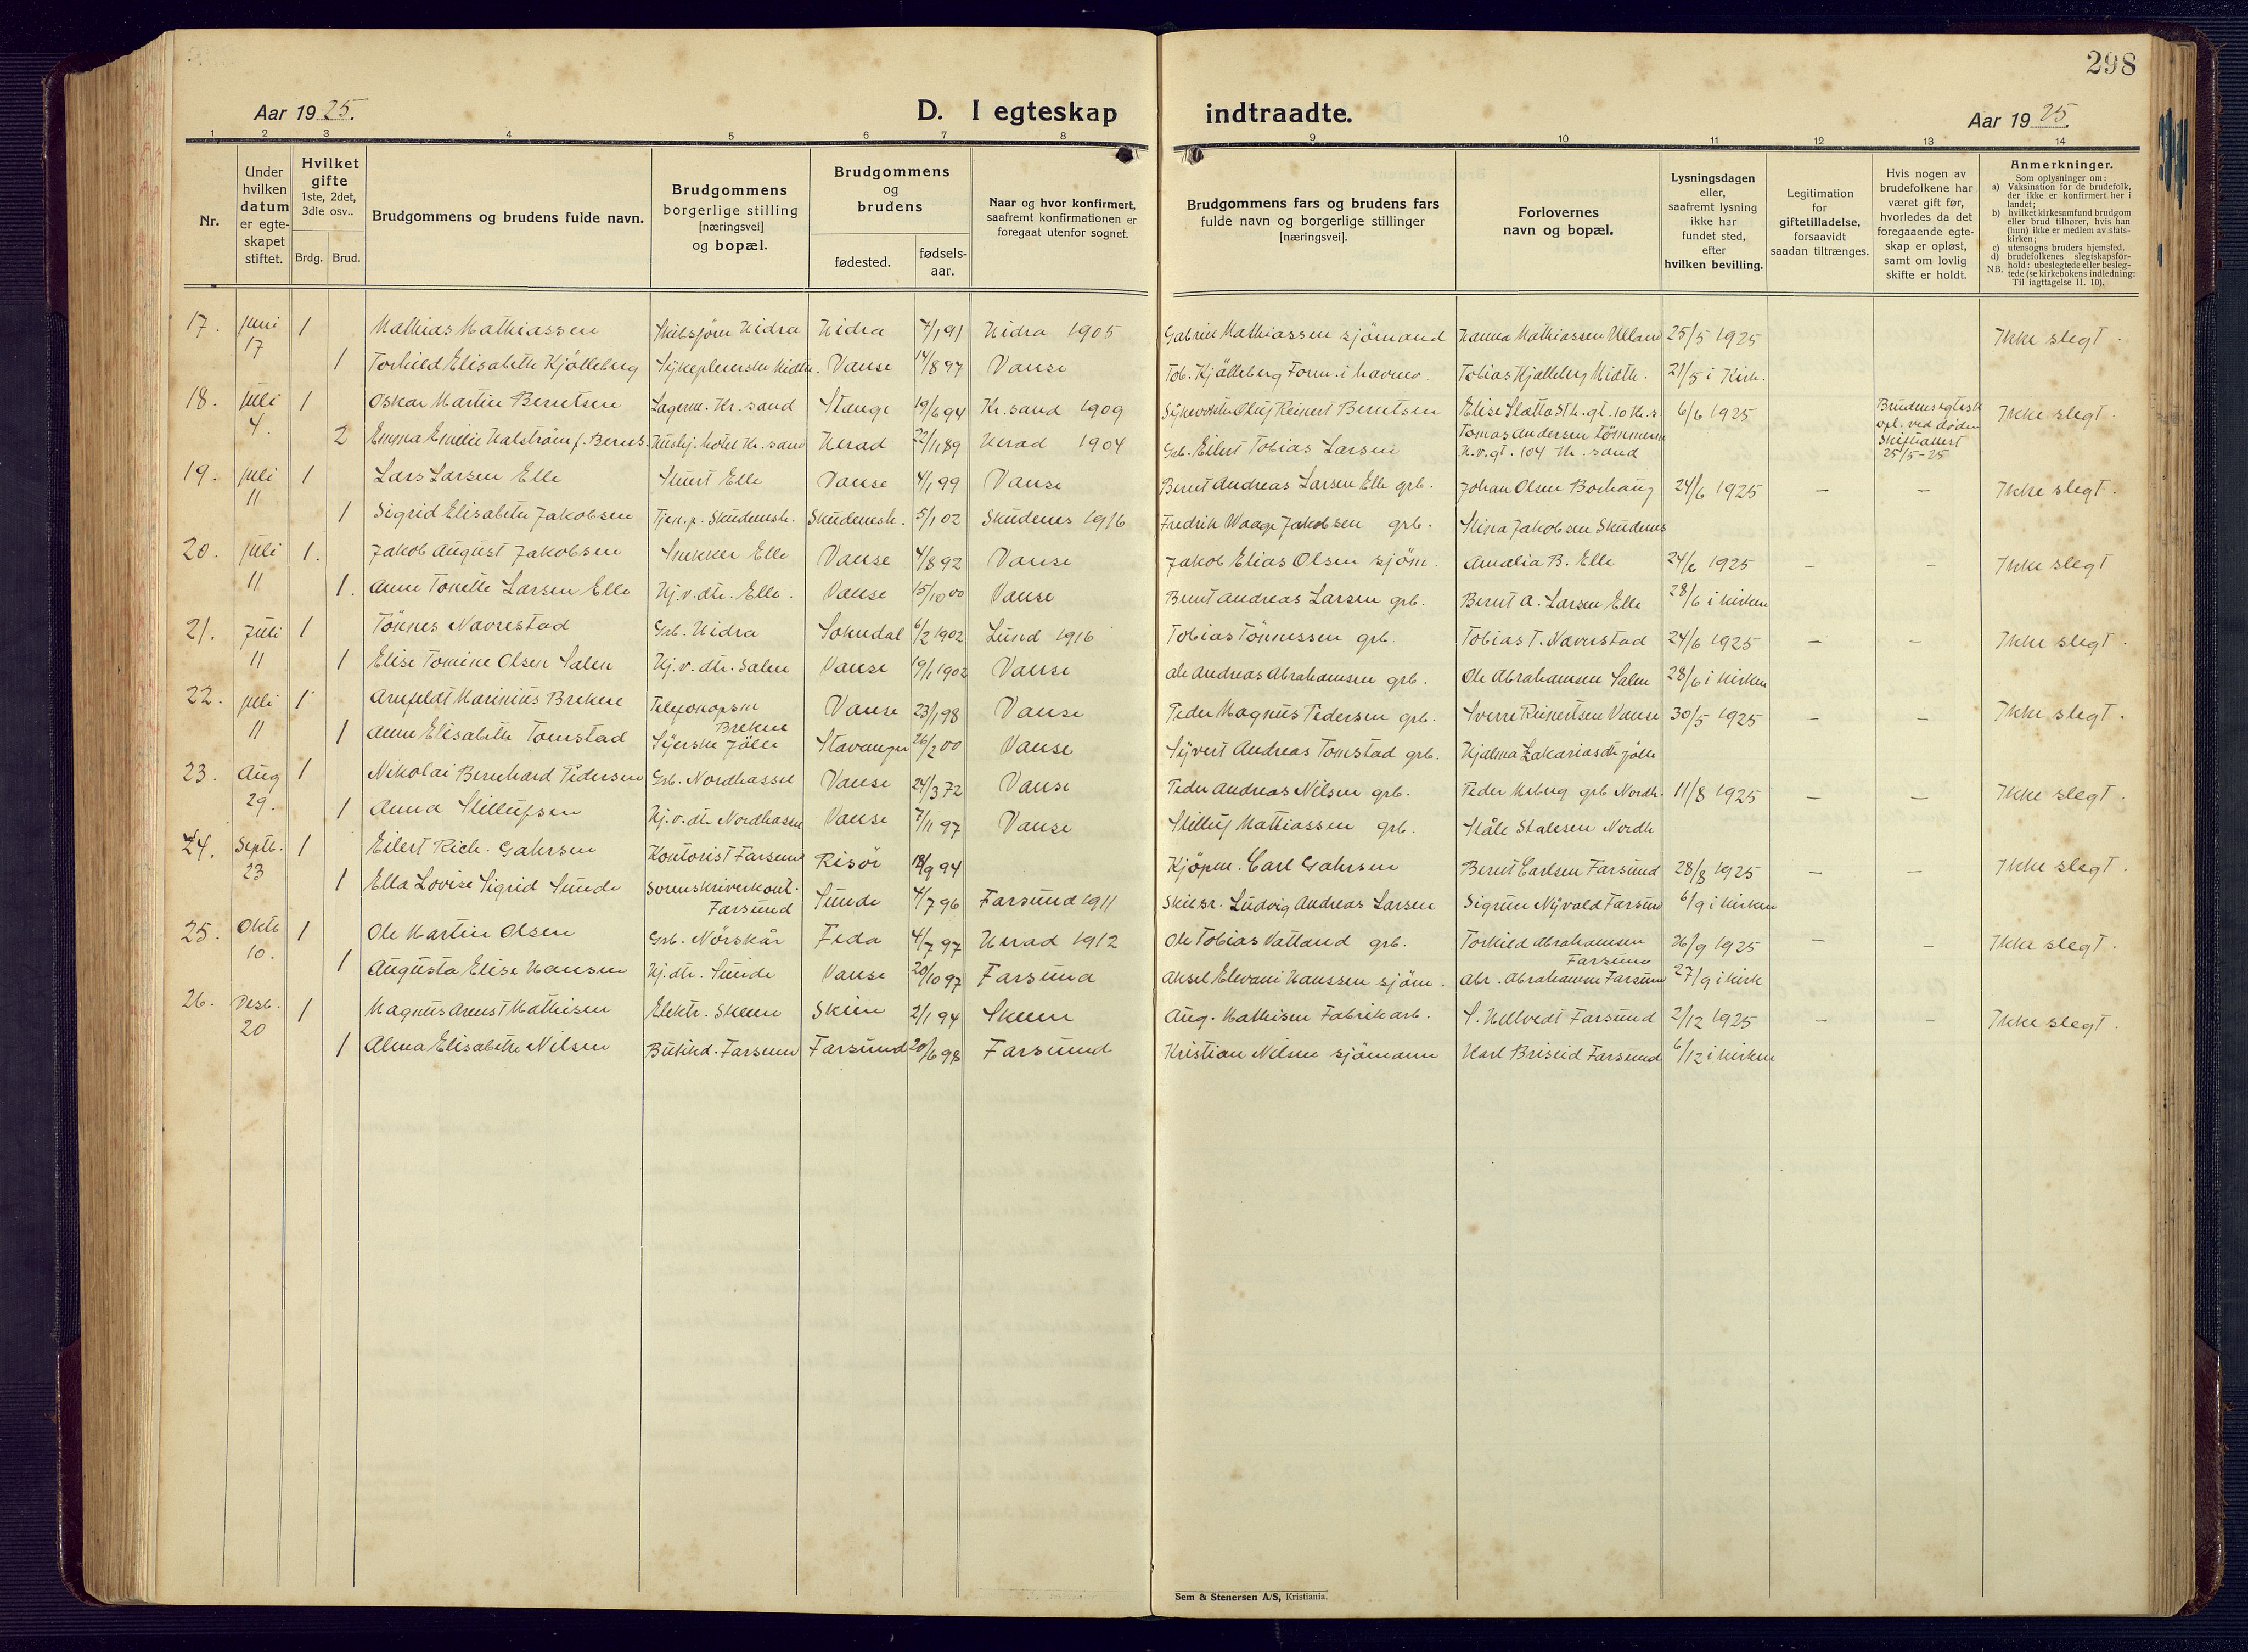 298
Aar 1925.
D. I egteskap indtraadte.
Aar 1925.
1 2 3 4 5 6 7 8 9 10 11 12 13 14
Nr.
Under hvilken datum er egteskapet stiftet.
Hvilket gifte 1ste, 2det, 3die osv..
Brdg. Brud.
Brudgommens og brudens fulde navn.
Brudgommens borgerlige stilling [næringsvei] og bopæl.
Brudgommens og brudens
fødested.
fødsels-aar.
Naar og hvor konfirmert, saafremt konfirmationen er foregaat utenfor sognet.
Brudgommens fars og brudens fars fulde navn og borgerlige stillinger [næringsvei].
Forlovernes navn og bopæl.
Lysningsdagen eller, saafremt lysning ikke har fundet sted, efter hvilken bevilling.
Legitimation for giftetilladelse, forsaavidt saadan tiltrænges.
Hvis nogen av brudefolkene har været gift før, hvorledes da det foregaaende egteskap er opløst, samt om lovlig skifte er holdt.
Anmerkninger.
Som oplysninger om:
a) Vaksination for de brudefolk, der ikke er konfirmert her i landet;
b) hvilket kirkesamfund brudgom eller brud tilhører, hvis han (hun) ikke er medlem av statskirken;
c) utensogns bruders hjemsted.
d) brudefolkenes slegtskapsforhold: ubeslegtede eller beslegtede (se kirkebokens indledning: Til iagttagelse II. 10).
NB.
17. juni 17 1 Mathias Mathiassen Hidra Hidra 7/1 91 Hidra 1905 Gabriel Mathiassen sjömand Hanna Mathiassen 25/5 1925 Ikke slegt.
1 Torhild Elisabeth Kjölleberg Vanse 14/8 97 Vanse Tob. Kjälleberg Form. i havnev. Tobias Kjälleberg Midth. 21/5 i Kirk.
18. juli 4. 1 Oskar Martin Berntsen Lagerm. Kr. sand Stange 19/6 94 Kr. sand 1909 Oluf Reinert Berntsen 6/6 1925 Brudens egtesk opl. ved döden Skifteattest 25/5-25 Ikke slegt.
2 Emma Emilie Halström f. Berns. Husbj. hotel Kr. sand Herad 22/11 89 Herad 1904 Grb. Eilert Tobias Larsen Tomas Andersen Tömmerm H.v.gt. 104 Kr. sand
19. juli 11 1 Lars Larsen Elle Stuert Elle Vanse 4/1 99 Vanse Bernt Andreas Larsen Elle grb. Johan Olsen Borhaug 24/6 1925 — — Ikke slegt.
1 Sigrid Elisabeth Jakobsen Tjen.p. Skudenesh. Skudenesh. 5/1 02 Skudenes 1916 Fredrik Waage Jakobsen grb. Stina Jakobsen Skudenes
20. juli 11 1. Jakob August Jakobsen Snekker Elle Vanse 4/8 92 Vanse Jakob Elias Olsen sjöm. Amalia B. Elle 24/6 1925 — — Ikke slegt
1. Anne Tonette Larsen Elle Hj.v.dtr. Elle. Vanse 15/10 00 Vanse Bernt Andreas Larsen grb. Bernt A. Larsen Elle 28/6 i kirken
21. Juli 11 1 Tönnes Navrestad Grb. Hidra Sokndal 6/2 1902 Lund 1916 Tobias Tönnessen grb. Tobias T. Navrestad 24/6 1925 — — Ikke slegt.
1 Elise Tomine Olsen Salen Hj.v.dtr. Salen Vanse 19/1 1902 Vanse Ole Andreas Abrahamsen grb. Ole Abrahamsen Salen 28/6 i kirken
22. juli 11 1 Arnfeldt Marinius Brekne Brekne Vanse 23/1 98 Vanse Peder Magnus Pedersen grb. Sverre Reinertsen Vanse 30/5 1925 — — Ikke slegt.
1 Anne Elisabeth Tomstad Syerske Jölle Stavanger 26/2 00 Vanse Syvert Andreas Tomstad grb. Hjalma Zakariasdtr Jölle
23. Aug 29. 1 Nikolai Bernhard Pedersen Grb. Nordhassel Vanse 24/3 72 Vanse Peder Andreas Nilsen grb. Peder Meberg grb Nordh. 11/8 1925 — — Ikke slegt.
1 Anna Stillufsen Hj.v.dtr Nordhassel Vanse 7/11 97 Vanse Stilluf Mathiassen grb. Ståle Stalesen Nordh
24. Septb. 23 1 Eilert Rich. Gahrsen Kontorist Farsund Risör 18/9 94 Kjöpm. Carl Gahrsen Bernt Carlsen Farsund 28/8 1925 — — Ikke slegt.
1 Ella Lovise Sigrid Sunde Sorenskriverkont. Farsund Sunde 4/7 96 Farsund 1911 Ludvig Andreas Larsen Sigrun Nyvold Farsund 6/9 i kirken
25. Oktb 10. 1 Ole Martin Olsen Grb. Nörskår Feda 4/7 97 Herad 1912 Ole Tobias Vatland grb. Torkild Abrahamsen Farsund 26/9 1925 — — Ikke slegt.
1 Augusta Elise Hansen Hj.dtr. Sunde Vanse 20/10 97 Farsund Aksel Elevani Hanssen sjöm. Abr. Abrahamsen Farsund 27/9 i kirk
26. Desb. 20 1 Magnus Arenst Mathisen Elektr. Skien Skien 2/1 94 Skien Aug. Mathisen Fabrikarb. S. Hellvedt Farsund 2/12 1925 — — Ikke slegt.
1 Alma Elisabeth Nilsen Butikd. Farsund Farsund 20/6 98 Farsund Kristian Nilsen sjömann Karl Briseid Farsund 6/12 i kirken
Sem & Stenersen A/S, Kristiania.